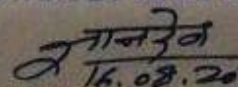 ज्ञानदेव
16.08.20